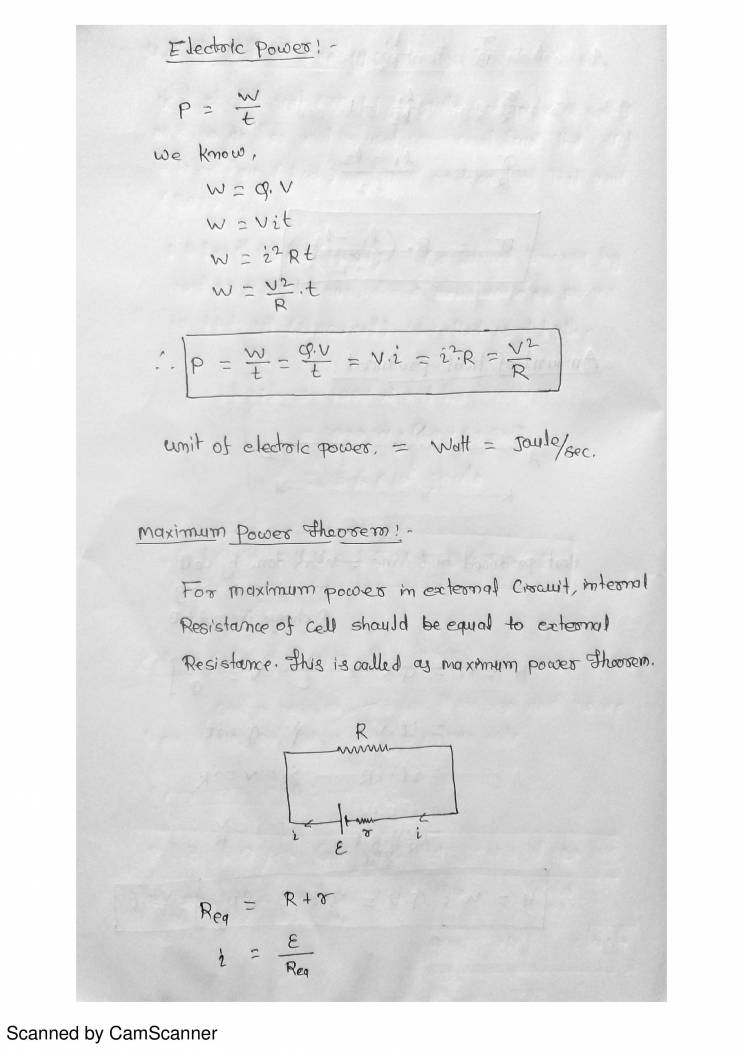 Electric Power :-
P = W/t
we know,
W = q.V
W = Vit
W = i²Rt
W = V²/R .t
∴ P = W/t = q.V/t = V.i = i².R = V²/R
unit of electric power. = Watt = Joule/sec.
Maximum Power Theorem :-
For maximum power in external Circuit, internal
Resistance of cell should be equal to external
Resistance. This is called as maximum power Theorem.
R
i ε r i
Req = R + r
i = ε/Req
Scanned by CamScanner